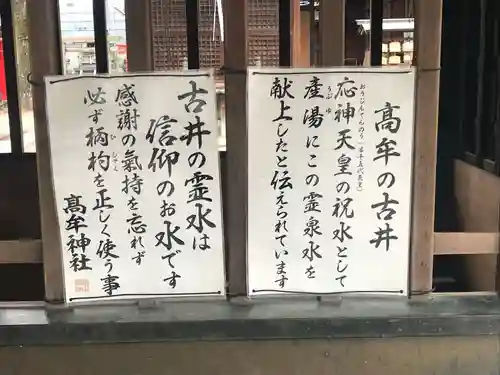 高牟の古井
応神天皇の祝水として
おうじんてんのう
(第十五代天皇)
産湯にこの霊泉水を
うぶゆ
献上したと伝えられています
古井の霊水は
信仰のお水です
感謝の氣持を忘れず
必ず柄杓を正しく使う事
ひしゃく
高牟神社